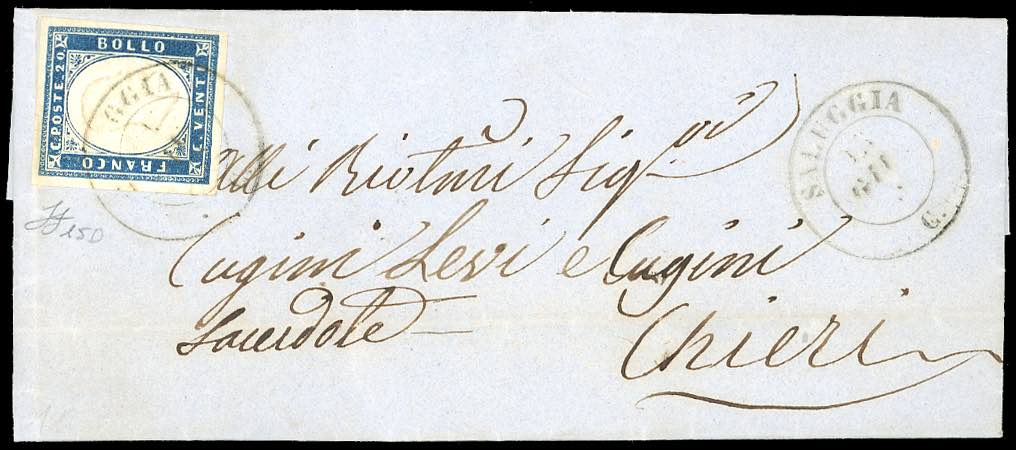 BOLLO
C. POSTE. 20.
C. VENTI
FRANCO
GGIA
SALUGGIA
15
GIU
alli Sig.ri
Cugini Levi e Cugini
Sacerdote
Chieri